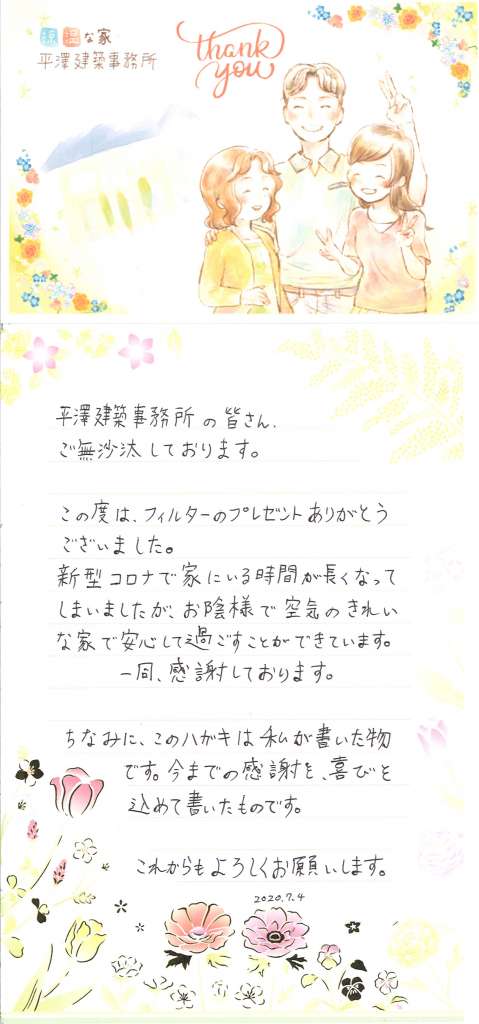 涼温な家
平澤建築事務所
thank
you
平澤建築事務所の皆さん、
ご無沙汰しております。
この度は、フィルターのプレゼントありがとう
ございました。
新型コロナで家にいる時間が長くなって
しまいましたが、お陰様で空気のきれい
な家で安心して過ごすことができています。
一同、感謝しております。
ちなみに、このハガキは私が書いた物
です。今までの感謝を、喜びを
込めて書いたものです。
これからもよろしくお願いします。
2020.7.4